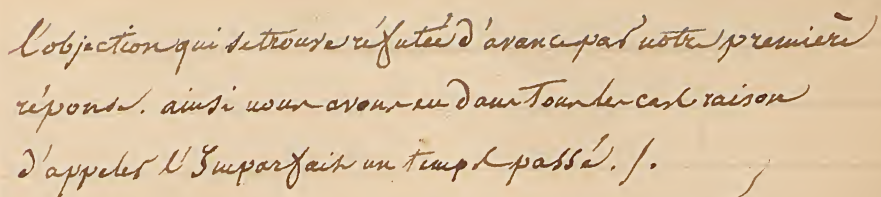 l'objection qui se trouve réfutée d'avance par notre première
réponse. ainsi nous avons eu dans tous les cas raison
d'appeler l'Imparfait un temps passé. /.